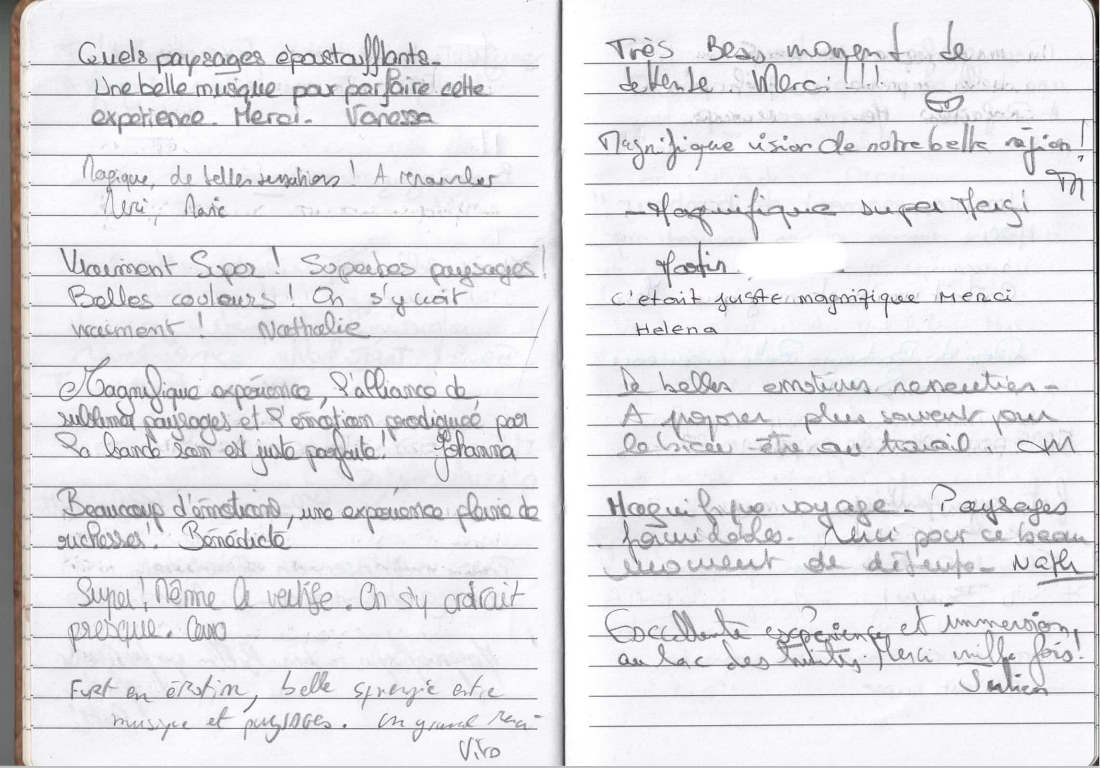 Quels paysages époustoufflants.
Une belle musique pour parfaire cette
expérience. Merci. Vanessa
Magique, de belles sensations ! A renouveler
Merci, Marie
Vraiment Super ! Superbes paysages !
Belles couleurs ! On s'y croit
vraiment ! Nathalie
Magnifique expérience, l'alliance de
sublimes paysages et l'émotion prodiguée par
la bande son est juste parfaite ! Johanna
Beaucoup d'émotions, une expérience pleine de
richesses ! Bénédicte
Super ! Même le vertige. On s'y croirait
presque. Caro
Fort en émotion, belle synergie entre
musique et paysages. Un grand merci
Très Beau moment de
detente. Merci !!!
Magnifique vision de notre belle région !
- Magnifique super Merci
c'était juste magnifique Merci
Helena
De belles émotions ressenties -
A proposer plus souvent pour
le bien-être au travail.
Magnifique voyage - Paysages
formidables. Merci pour ce beau
moment de détente - Nath
Excellente expérience et immersion,
au lac des Merci mille fois !